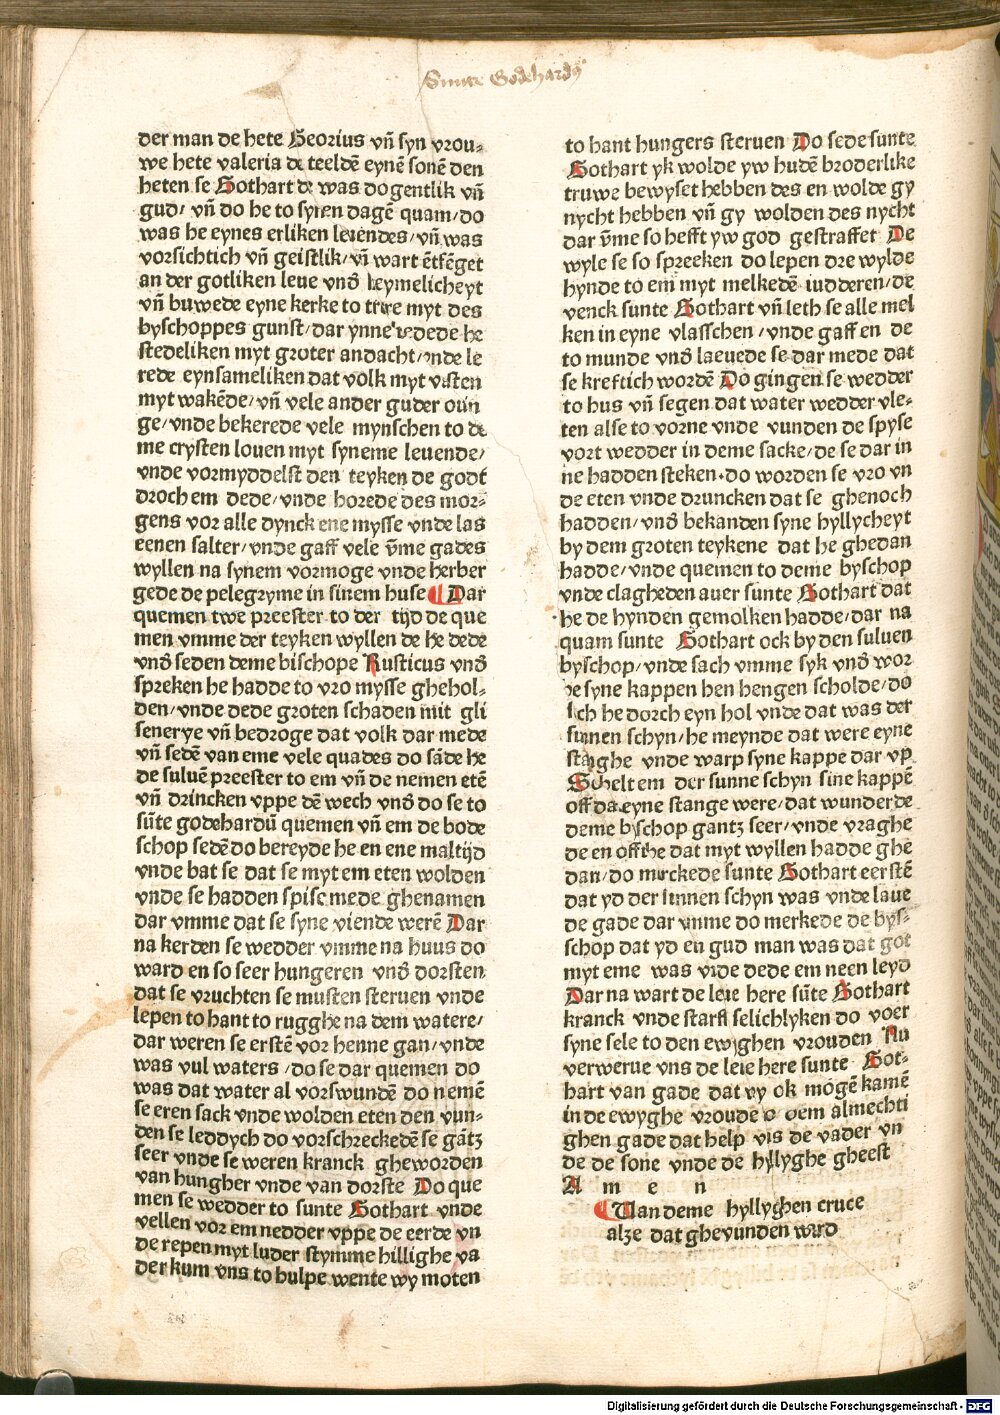 Sunte Godehardus
der man de hete Georius vn̄ syn vrou⸗
we hete valeria de teeldē eynē sonē den
heten se Gothart de was dogentlik vn̄
gud/ vn̄ do he to synen dagē quam/do
was he eynes erliken leuendes/vn̄ was
vorsichtich vn̄ geistlik/vn̄ wart ētfēget
an der gotliken leue vnd̄ heymelicheyt
vn̄ buwede eyne kerke to myt des
byschoppes gunst/dar ynne dede he
stedeliken myt groter andacht/vnde le
rede eynsameliken dat volk myt vasten
myt wakēde/vn̄ vele ander guder ouin
ge/vnde bekerede vele mynschen to de
me crysten louen myt syneme leuende/
vnde vormyddelst den teyken de godt
droch em dede/vnde horede des mor⸗
gens vor alle dynck ene mysse vnde las
eenen salter/vnde gaff vele v̄me gades
wyllen na synem vormoge vnde herber
gede de pelegryme in sinem huse ¶ Dar
quemen twe preester to der tijd de que
men vmme der teyken wyllen de he dede
vnd̄ seden deme bischope Rusticus vnd̄
spreken he hadde to vro mysse ghehol⸗
den/vnde dede groten schaden mit gli
senerye vn̄ bedroge dat volk dar mede
vn̄ sedē van eme vele quades do sāde he
de suluē preester to em vn̄ de nemen etē
vn̄ drincken vppe dē wech vnd̄ do se to
sūte godehardū quemen vn̄ em de bode
schop sedē do bereyde he en ene maltijd
vnde bat se dat se myt em eten wolden
vnde se hadden spise mede ghenamen
dar vmme dat se syne viende werē Dar
na kerden se wedder vmme na huus do
ward en so seer hungeren vnd̄ dorsten
dat se vruchten se musten steruen vnde
lepen to hant to rugghe na dem watere/
dar weren se erstē vor henne gan/vnde
was vul waters/do se dar quemen do
was dat water al vorswundē do nemē
se eren sack vnde wolden eten den vun⸗
den se leddych do vorschreckedē se gātz
seer vnde se weren kranck gheworden
van hungher vnde van dorste Do que
men se wedder to sunte Gothart vnde
vellen vor em nedder vppe de eerde vn
de repen myt luder stymme hillighe va
der kum vns to hulpe wente wy moten
to hant hungers steruen Do sede sunte
Gothart yk wolde yw hudē broderlike
truwe bewyset hebben des en wolde gy
nycht hebben vn̄ gy wolden des nycht
dar v̄me so hefft yw god gestraffet De
wyle se so spreeken do lepen dre wylde
hynde to em myt melkedē iudderen/de
venck sunte Gothart vn̄ leth se alle mel
ken in eyne vlasschen/vnde gaff en de
to munde vnd̄ laeuede se dar mede dat
se kreftich wordē Do gingen se wedder
to hus vn̄ segen dat water wedder vle⸗
ten alse to vorne vnde vunden de spyse
vort wedder in deme sacke/de se dar in
ne hadden steken.do worden se vro vn
de eten vnde druncken dat se ghenoch
hadden/vnd̄ bekanden syne hyllycheyt
by dem groten teykene dat he ghedan
hadde/vnde quemen to deme byschop
vnde clagheden auer sunte Gothart dat
he de hynden gemolken hadde/dar na
quam sunte Gothart ock by den suluen
byschop/vnde sach vmme syk vnd̄ wor
he syne kappen hen hengen scholde/do
sch he dorch eyn hol vnde dat was der
sunnen schyn/he meynde dat were eyne
stanghe vnde warp syne kappe dar vp
Schelt em der sunne schyn sine kappē
off da eyne stange were/dat wunderde
deme byschop gantz seer/vnde vraghe
de en off he dat myt wyllen hadde ghe
dan/do merckede sunte Gothart eerstē
dat yd der sunnen schyn was vnde laue
de gade dar vmme do merkede de bys⸗
schop dat yd en gud man was dat got
myt eme was vnde dede em neen leyd
Dar na wart de leue here sūte Gothart
kranck vnde starff selichlyken do voer
syne sele to den ewighen vrouden Nu
verwerue vns de leue here sunte Got⸗
hart van gade dat wy ok mögē kamē
in de ewyghe vroude to dem almechti
ghen gade dat help vns de vader vn
de de sone vnde de hyllyghe gheest
A m e n
¶ Uan deme hyllyghen cruce
alze dat ghevunden ward
Digitalisierung gefördert durch die Deutsche Forschungsgemeinschaft - DFG